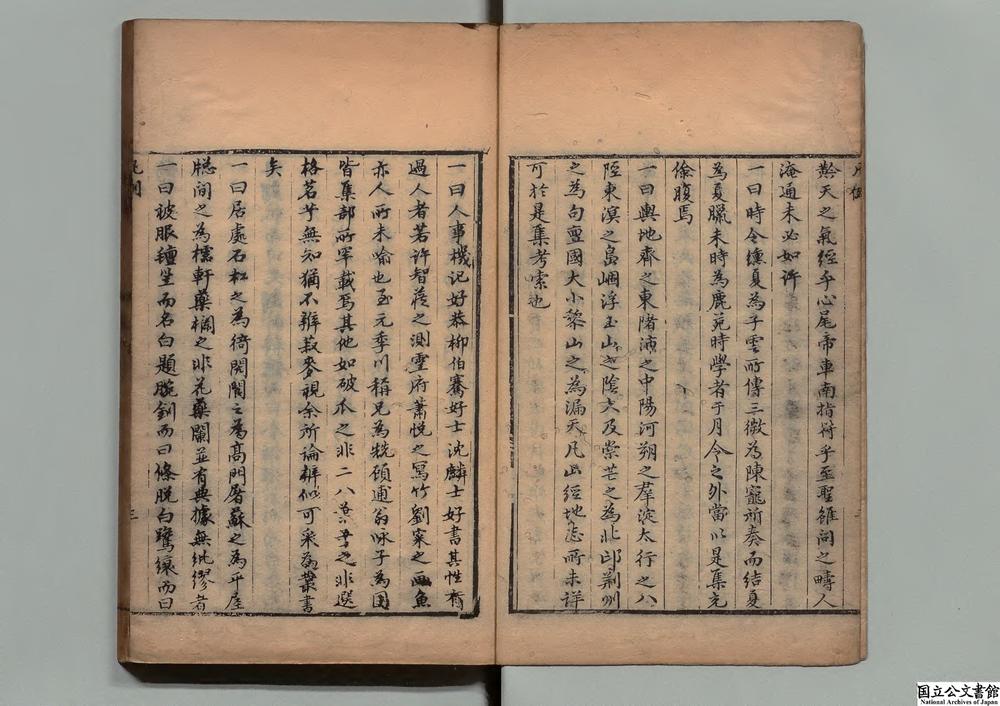 凡例
齡天之氣經乎心尾帝車南指符乎至聖雖問之疇人
淹通未必如許
一曰時令纁夏為子雲所傳三微為陳寵所奏而結夏
為夏臘未時為鹿苑時學者于月令之外當以是集充
儉腹焉
一曰輿地齊之東陼沛之中陽河朔之羣淀太行之八
陘東溟之島嵎浮玉山之陰大及崇芒之為北邙荆州
之為句亶國大小黎山之為漏天凡此經地志所未詳
可於是集考索也
一曰人事機記好恭柳伯騫好士沈麟士好書其性有
過人者若許智蔵之測靈府蕭悅之寫竹劉寀之畫魚
亦人所未喻也至元季川稱兄為牲頓逋翁咏子為囝
皆集部所罕載焉其他如破瓜之非二八之非選
格茗艼無知猶不辨菽麥視余所論辨似可采為叢書
矣
一曰居處石松之為綺閔閣之為高門屠蘇之為平屋
牕間之為櫺軒藥欄之非花藥闌並有典據無紕繆者
一曰被服氊笠而名白題腕釧而曰條脫白鷺縗而曰
凡例
三
国立公文書館
National Archives of Japan